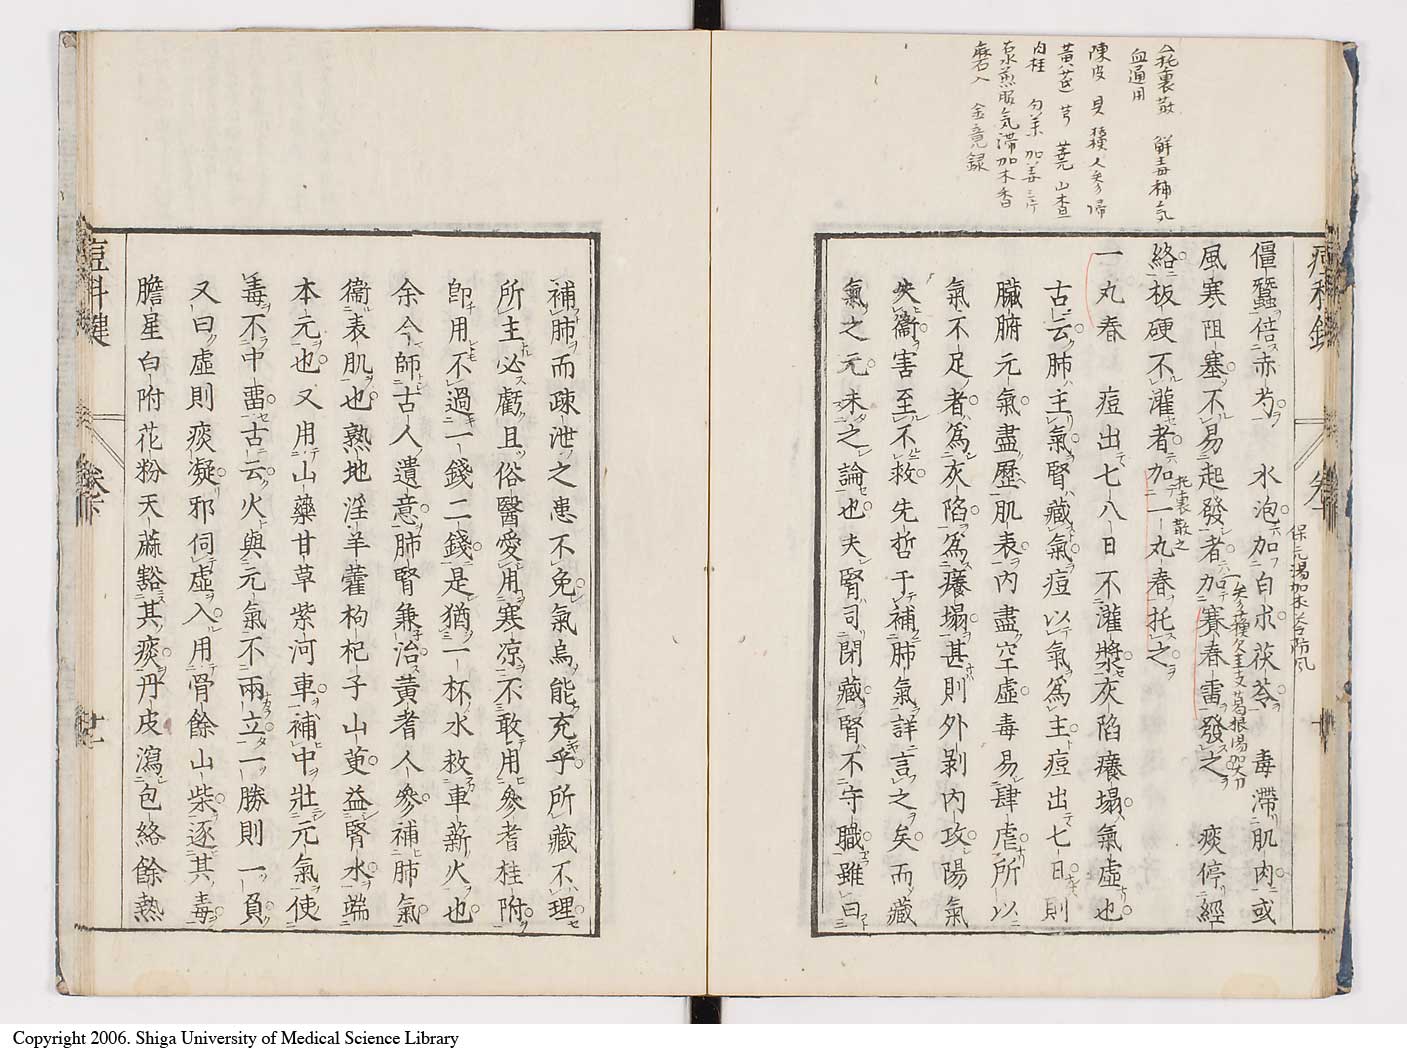 托裏散 解毒補気
血通用
內桂
金竟録
僵蠶倍赤芍 水泡加白朮茯苓 毒滯肌肉或
風寒阻塞不易起發者加賽春雷發之 痰停經
絡板硬不灌者加一丸春托之
托裏散之
一丸春 痘出七八日不灌漿灰陷癢塌氣虛也
古云肺主氣腎藏氣痘以氣爲主痘出七日則
臟腑元氣盡歷肌表內盡空虛毒易肆虐所以
氣不足者爲灰陷爲癢塌甚則外剝內攻陽氣
失衞害至不救先哲于補肺氣詳言之矣而藏
氣之元未之論也夫腎司閉藏腎不守職雖曰
補肺而疎泄之患不免氣烏能充乎所藏不理
所主必虧且俗醫愛用寒凉不敢用參者桂附
卽用不過一錢二錢是猶一杯水救車薪火也
余今師古人遺意肺腎兼治黃耆人參補肺氣
衞表肌也熟地淫羊藿枸杞子山萸益腎水端
本元也又用山藥甘草紫河車補中壯元氣使
毒不中畱古云火與元氣不兩立一勝則一負
又曰虛則痰凝邪伺虛入用骨餘山柴逐其毒
膽星白附花粉天蔴豁其痰丹皮瀉包絡餘熱
痘科鍵 卷下 十一